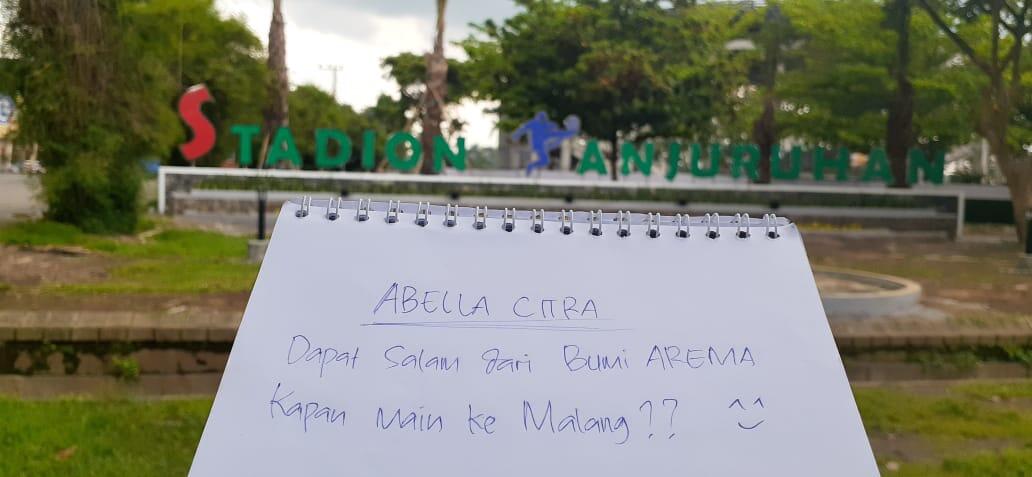 STADION KANJURUHAN
ABELLA CITRA
Dapat Salam dari Bumi AREMA
Kapan Main ke Malang??